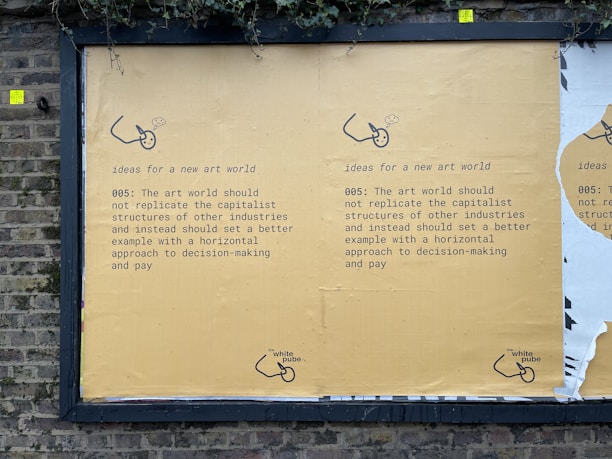 ideas for a new art world
005: The art world should
not replicate the capitalist
structures of other industries
and instead should set a better
example with a horizontal
approach to decision-making
and pay
the
white
pube
ideas for a new art world
005: The art world should
not replicate the capitalist
structures of other industries
and instead should set a better
example with a horizontal
approach to decision-making
and pay
the
white
pube
ideas f
005: T
not re